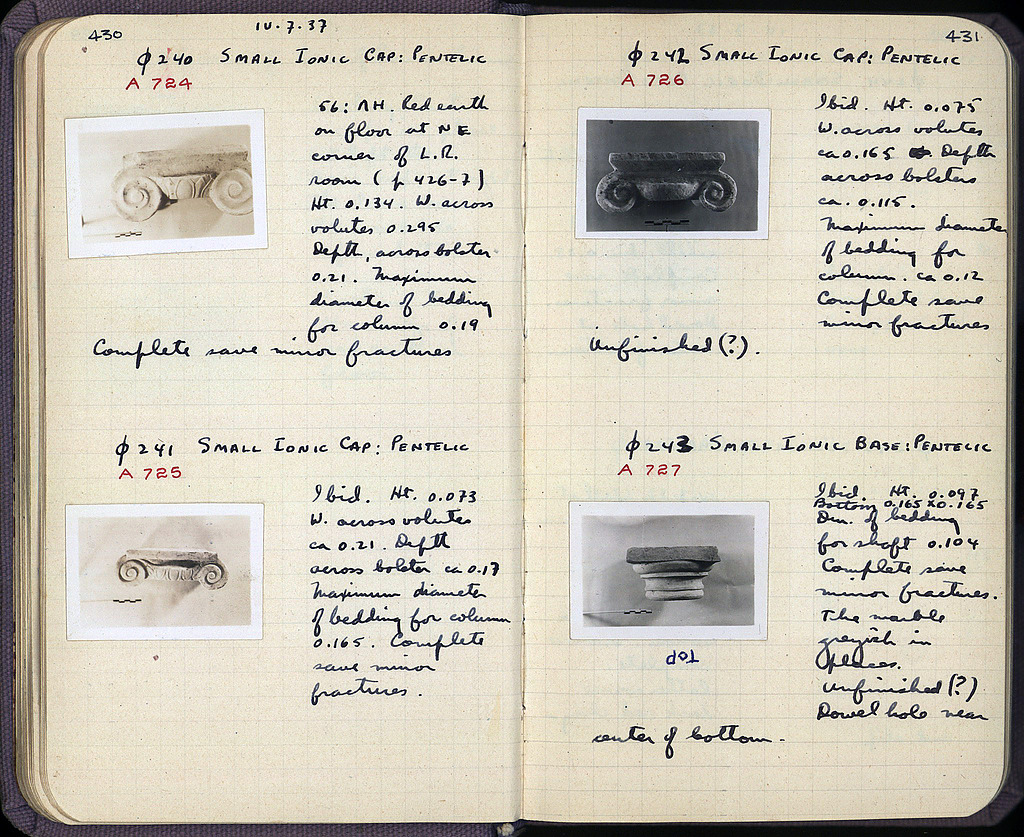 430
10.7.37
φ240 SMALL IONIC CAP: PENTELIC
A 724
56: ΛΗ. Red earth
on floor at NE
corner of L.R.
room (p 426-7)
Ht. 0.134. W. across
volutes 0.295
Depth, across bolster
0.21. Maximum
diameter of bedding
for column 0.19
Complete save minor fractures
φ241 SMALL IONIC CAP: PENTELIC
A 725
Ibid. Ht. 0.073
W. across volutes
ca 0.21. Depth
across bolster ca 0.17
Maximum diameter
of bedding for column
0.165. Complete
save minor
fractures.
431
φ242 SMALL IONIC CAP: PENTELIC
A 726
Ibid. Ht. 0.075
W. across volutes
ca 0.165 Depth
across bolsters
ca. 0.115.
Maximum diameter
of bedding for
column. ca 0.12
Complete save
minor fractures
Unfinished (?).
φ243 SMALL IONIC BASE: PENTELIC
A 727
Ibid. Ht. 0.097
Bottom 0.165 x 0.165
Dim. of bedding
for shaft 0.104
Complete save
minor fractures.
The marble
greyish in
places.
Unfinished (?)
Dowel hole near
center of bottom.
TOP